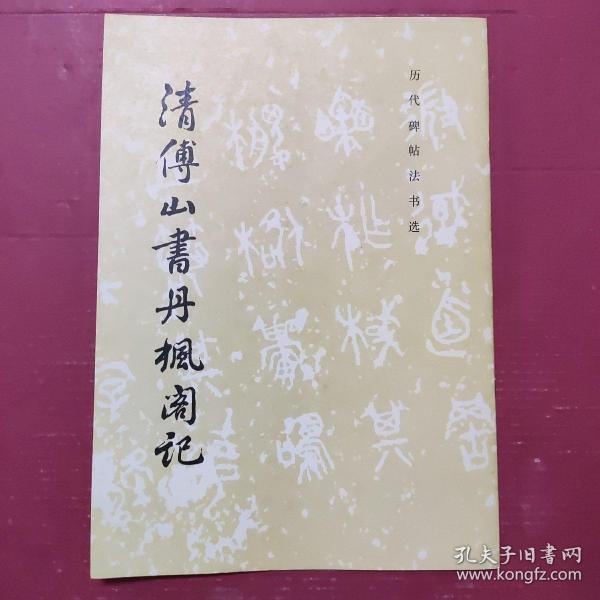 历代碑帖法书选
清傅山書丹枫阁记
孔夫子旧書网
www.kongfz.com